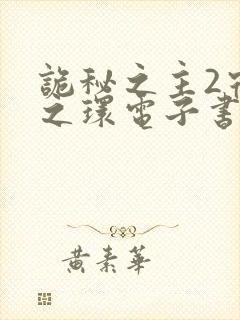 詭秘之主2宿
之環電子書
黃素華